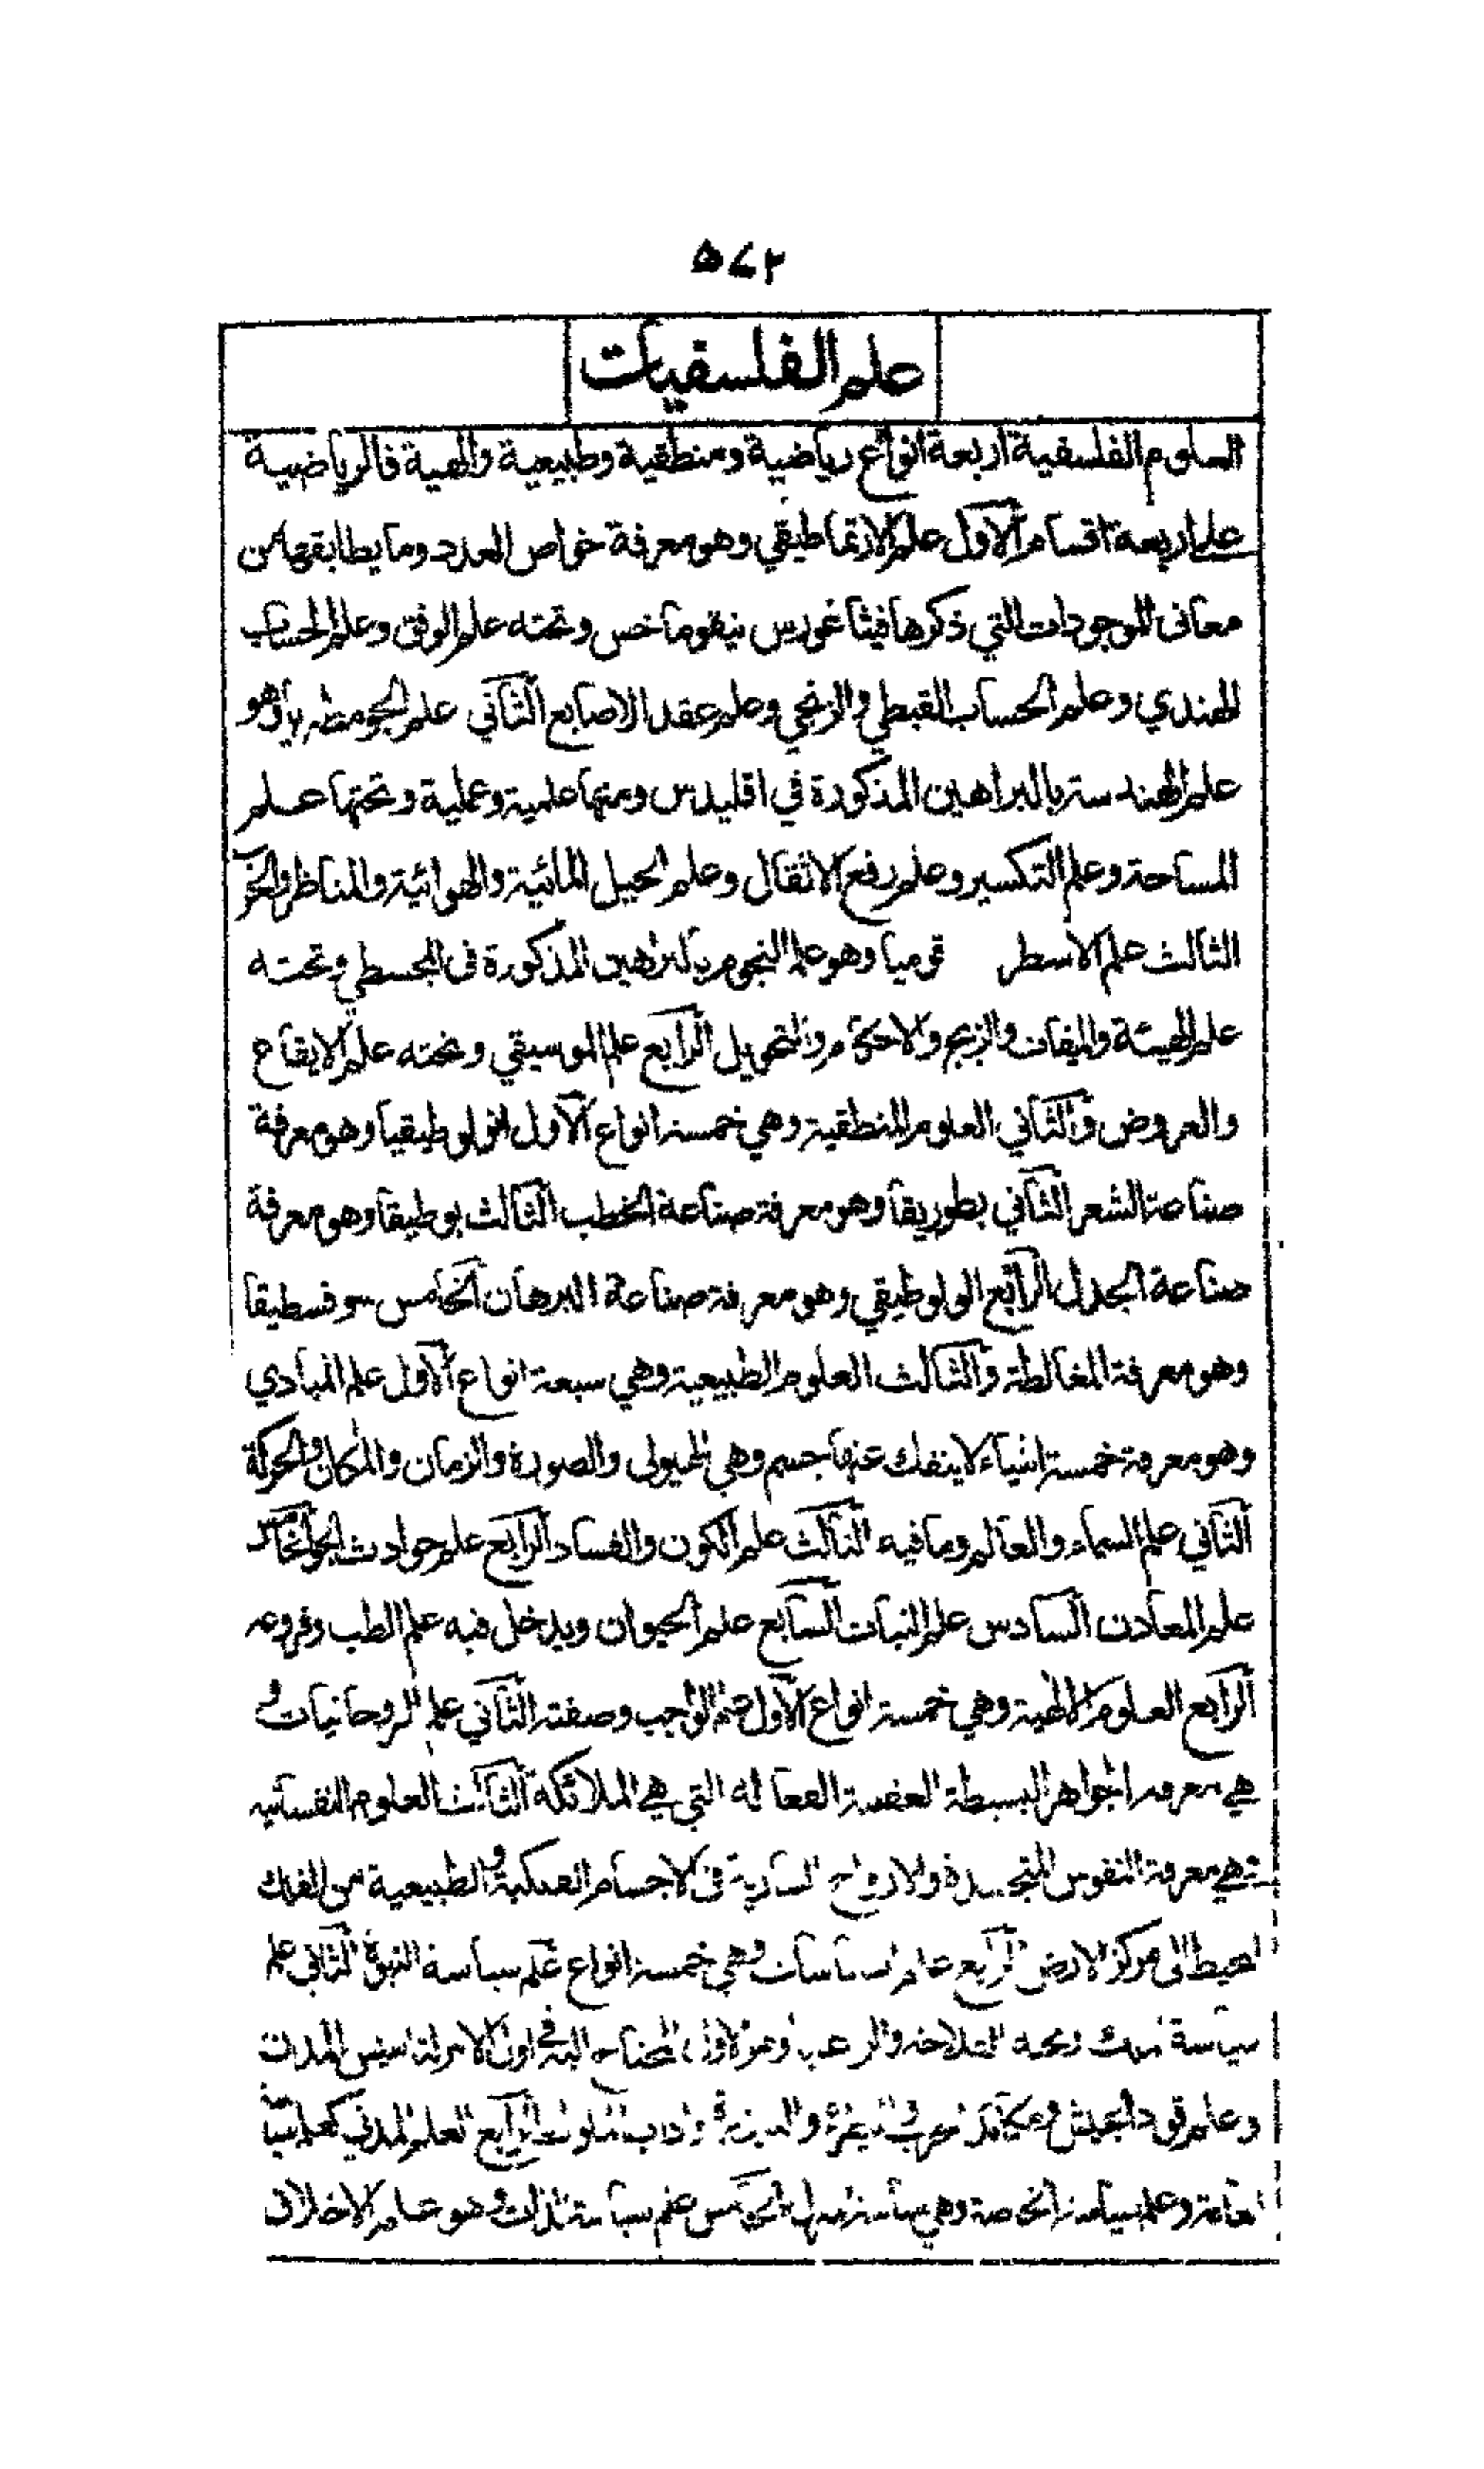 ٥٧٢
علم الفلسفيات
العلوم الفلسفية اربعة انواع رياضية ومنطقية وطبيعية والهية فالرياضية
على اربعة اقسام الاول علم الارتماطيقي وهو معرفة خواص العدد وما يطابقها من
معانى الموجودات التي ذكرها فيثاغورس نيقوماخس وتحته علم الوفق وعلم الحساب
الهندي وعلم الحساب القبطي والزنجي وعلم عقد الاصابع الثاني علم الجومطريا وهو
علم الهندسة بالبراهين المذكورة في اقليدس ومنها علمية وعملية وتحتها علم
المساحة وعلم التكسير وعلم رفع الاثقال وعلم الحيل المائية والهوائية والمناظر والحز
الثالث علم الاسطر قوميا وهو علم النجوم بالبراهين المذكورة فى المجسطي وتحته
علم الهيئة والميقات والزيج والاحكام والتحويل الرابع علم الموسيقي وتحته علم الايقاع
والعروض والثاني العلوم المنطقية وهي خمسة انواع الاول انولوطيقيا وهو معرفة
صناعة الشعر الثاني بطوريقا وهو معرفة صناعة الخطب الثالث بوطيقا وهو معرفة
صناعة الجدل الرابع الولوطيقي وهو معرفة صناعة البرهان الخامس سوفسطيقا
وهو معرفة المغالطة والثالث العلوم الطبيعية وهي سبعة انواع الاول علم المبادي
وهو معرفة خمسة اشياء لا ينفك عنها جسم وهي الهيولى والصورة والزمان والمكان والحركة
الثاني علم السماء والعالم وما فيه الثالث علم الكون والفساد الرابع علم حوادث الجو الخامس
علم المعادن السادس علم النبات السابع علم الحيوان ويدخل فيه علم الطب وفروعه
الرابع العلوم الالهية وهي خمسة انواع الاول علم الواجب وصفته الثاني علم الروحانيات و
هي معرفة الجواهر البسيطة العقلية الفعالة التي هي الملائكة الثالث العلوم النفسانية
وهي معرفة النفوس المتجسدة والارواح السارية فى الاجسام الفلكية والطبيعية من الفلك
المحيط الى مركز الارض الرابع علم السياسات وهي خمسة انواع علم سياسة النبوة الثاني علم
سياسة الملك وتحته الفلاحة والرعب وهو الاول المحتاج اليه في اول الامر لتاسيس المدن
وعلم قود الجيش ومكائد الحرب والبيطرة والبيزرة واداب الملوك الرابع العلم المدني كعلم سياسة
العامة وعلم سياسة الخاصة وهي سياسة المنزل الخامس علم سياسة الذات وهو علم الاخلاق